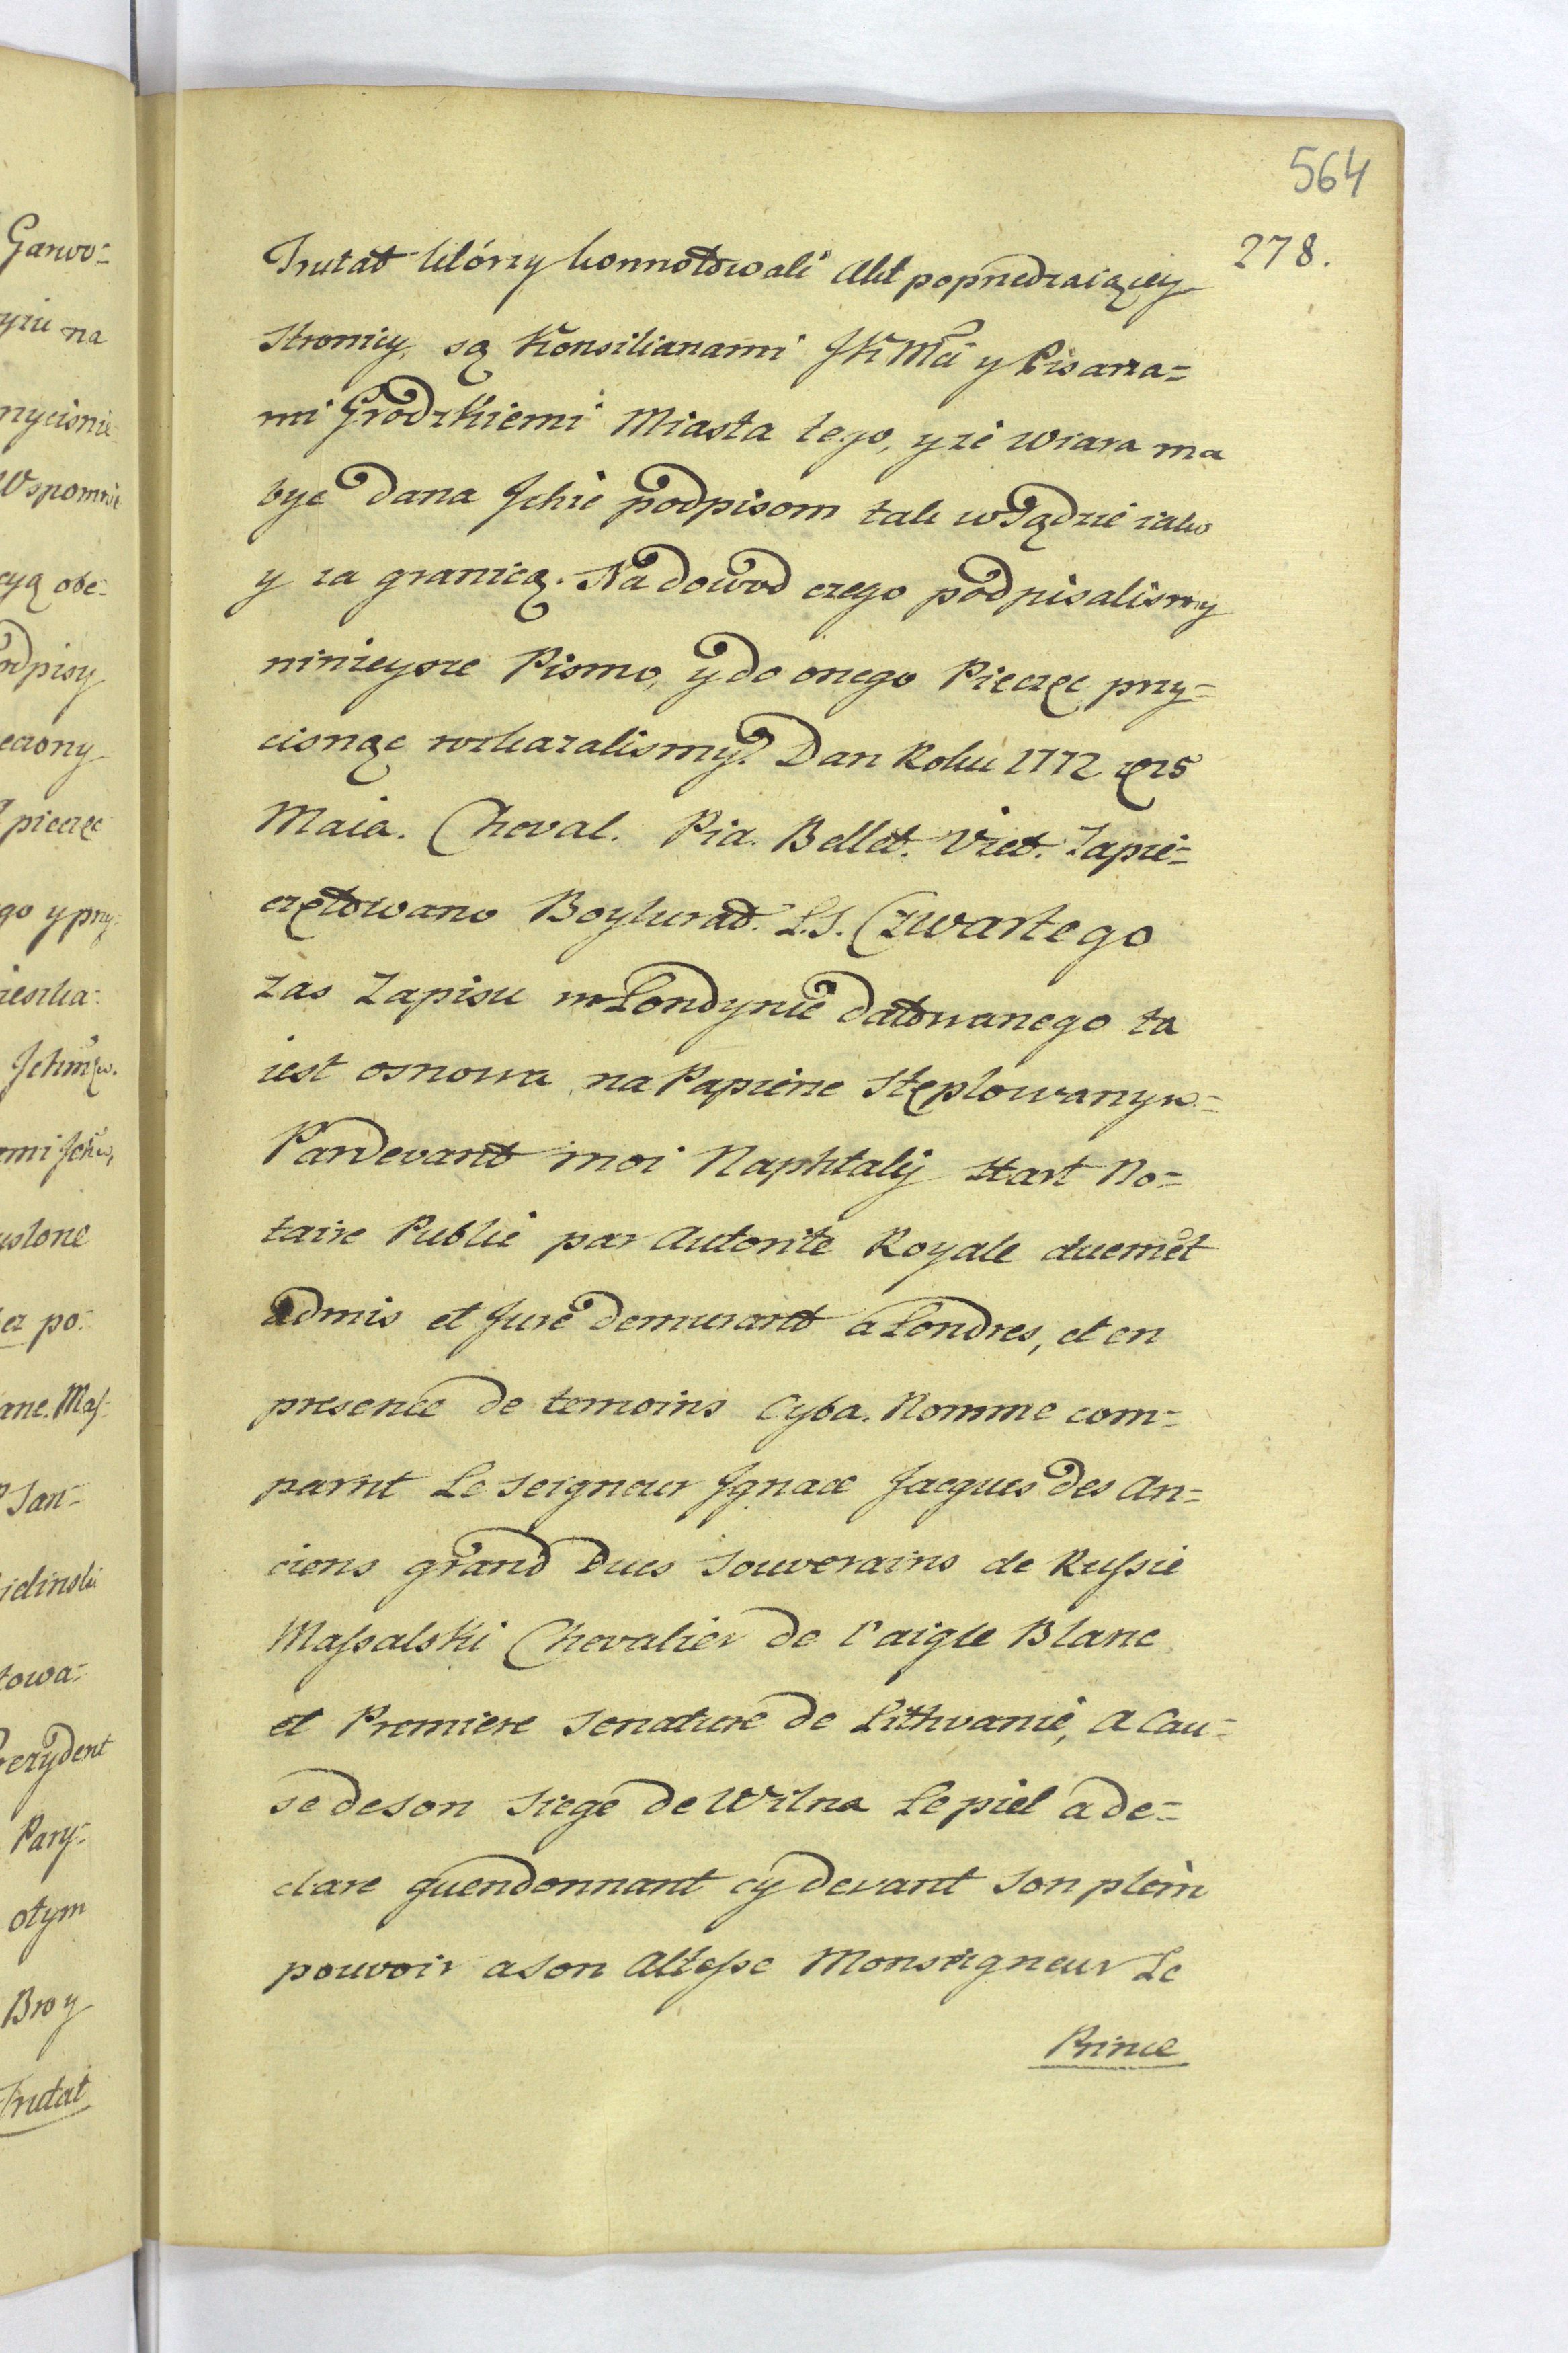 564
278.
Trutat którzy konnotowali Akt poprzedzaiącey
Stronicy, są Konsiliarzami JK Mci y Pisarza=
mi Grodzkiemi Miasta tego, y że wiara ma
byc dana Ichże podpisom tak w Sądzie iako
y za granicą. Na dowod czego podpisalismy
ninieysze Pismo, y do onego Pieczęc przy=
cisnąc rozkazalismy. Dan Roku 1772 15
Maia. Cheval. Pia. Bellet. Viet. Zapie=
czętowano Boykurad. L.S. Czwartego
zas Zapisu w Londynie datowanego ta
iest osnowa na Papierze Stęplowanym=
Pardevant moi Naphtaly Hart No=
taire Publie par Autorite Royale duemet
admis et Jure demurant a Londres, et en
presence de temoins Cyba. Nomme com=
parnt Le Seigneur Jgnace Jacques des An=
ciens grand Ducs Souverains de Russie
Massalski Chevalier de l'aigle Blanc
et Premiere Senature de Lithvanie, a Cau=
se de son Siege de Wilna Lepiel a de=
clare quendonnant cy devant Son plein
pouvoir a son Altesse Monseigneur Le
Prince
Garwo=
na
Wspomnie
cyą obe=
pieczęc
go y przy=
Jchmw.
ami Jchw,
ez po=
Mas=
San=
towa=
Pary=
otym
Broy
Trutat